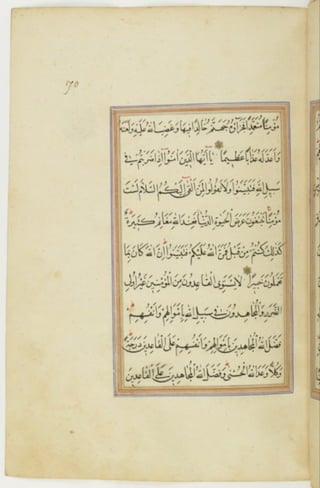 70
مُؤْمِنًا مُتَعَمِّدًا فَجَزَاؤُهُ جَهَنَّمُ خَالِدًا فِيهَا وَغَضِبَ اللهُ عَلَيْهِ وَلَعَنَهُ
وَاَعَدَّ لَهُ عَذَابًا عَظِيمًا يَا اَيُّهَا الَّذِينَ اٰمَنُوا اِذَا ضَرَبْتُمْ فِي
سَبِيلِ اللهِ فَتَبَيَّنُوا وَلَا تَقُولُوا لِمَنْ اَلْقٰى اِلَيْكُمُ السَّلَامَ لَسْتَ
مُؤْمِنًا تَبْتَغُونَ عَرَضَ الْحَيٰوةِ الدُّنْيَا فَعِنْدَ اللهِ مَغَانِمُ كَثِيرَةٌ
كَذٰلِكَ كُنْتُمْ مِنْ قَبْلُ فَمَنَّ اللهُ عَلَيْكُمْ فَتَبَيَّنُوا اِنَّ اللهَ كَانَ بِمَا
تَعْمَلُونَ خَبِيرًا لَا يَسْتَوِي الْقَاعِدُونَ مِنَ الْمُؤْمِنِينَ غَيْرُ اُولِي
الضَّرَرِ وَالْمُجَاهِدُونَ فِي سَبِيلِ اللهِ بِاَمْوَالِهِمْ وَاَنْفُسِهِمْ
فَضَّلَ اللهُ الْمُجَاهِدِينَ بِاَمْوَالِهِمْ وَاَنْفُسِهِمْ عَلَى الْقَاعِدِينَ دَرَجَةً
وَكُلًّا وَعَدَ اللهُ الْحُسْنٰى وَفَضَّلَ اللهُ الْمُجَاهِدِينَ عَلَى الْقَاعِدِينَ